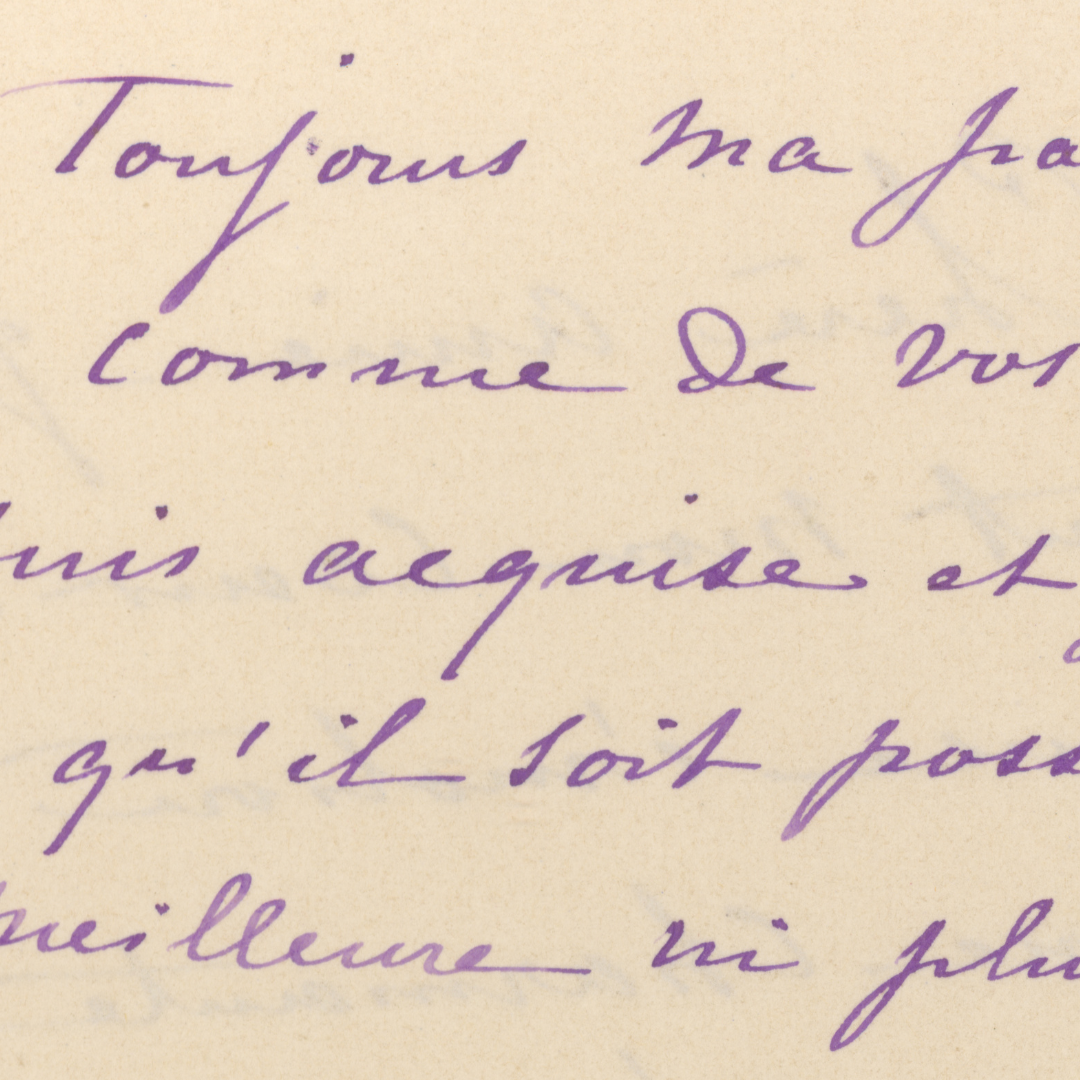 Toujours ma pa
comme de vos
uis acquise et
qu'il soit poss
meilleure ni plu